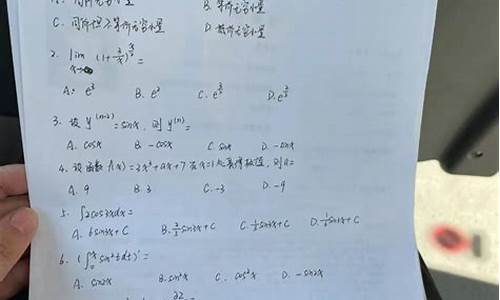 A. 同阶无穷小量 B. 等价无穷小量
C. 同阶但不等价无穷小量 D.
2. lim x→∞ (1+2/x)^ =
A. e³ B. e² C. D.
3. 设 y⁽ⁿ⁻²⁾=sinx, 则 y⁽ⁿ⁾=
A. cosx B. -cosx C. sinx D. -sinx
4. 设函数 f(x)=2x³+ax+7 在x=1处取得极值, 则a=
A. 9 B. 3 C. -3 D. -9
5. ∫2cos3xdx=
A. 6sin3x+C B. 2/3 sin3x+C C. 1/3 sin3x+C D. sin3x+C
6. (∫₀ˣ sin²tdt)'=
A. sin2x B. sin²x C. cos²x D. -sin2x